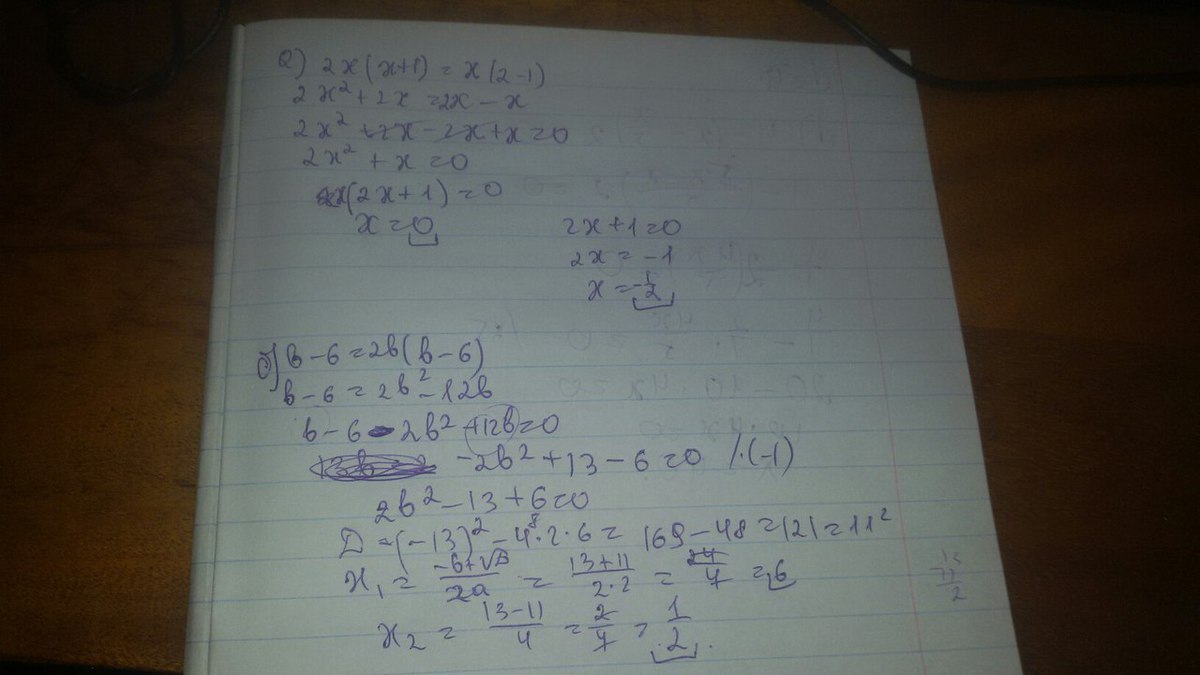 а) 2x(x+1) = x(2-1)
2x² + 2x = 2x - x
2x² + 2x - 2x + x = 0
2x² + x = 0
x(2x+1) = 0
x = 0
2x+1=0
2x = -1
x = -1/2
б) b-6 = 2b(b-6)
b-6 = 2b² - 12b
b-6 - 2b² + 12b = 0
-2b² + 13 - 6 = 0 /·(-1)
2b² - 13 + 6 = 0
D = (-13)² - 4·2·6 = 169 - 48 = 121 = 11²
x₁ = -b+√D/2a = 13+11/2·2 = 24/4 = 6
x₂ = 13-11/4 = 2/4 = 1/2.